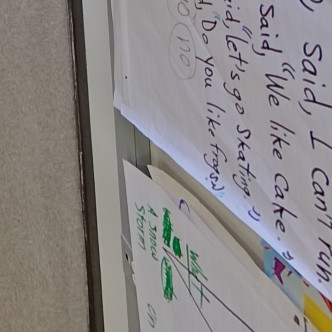 , said, I can't run
said, "We like cake."
id, "let's go skating."
, "Do you like frogs?"
no
What
A snow
Storm